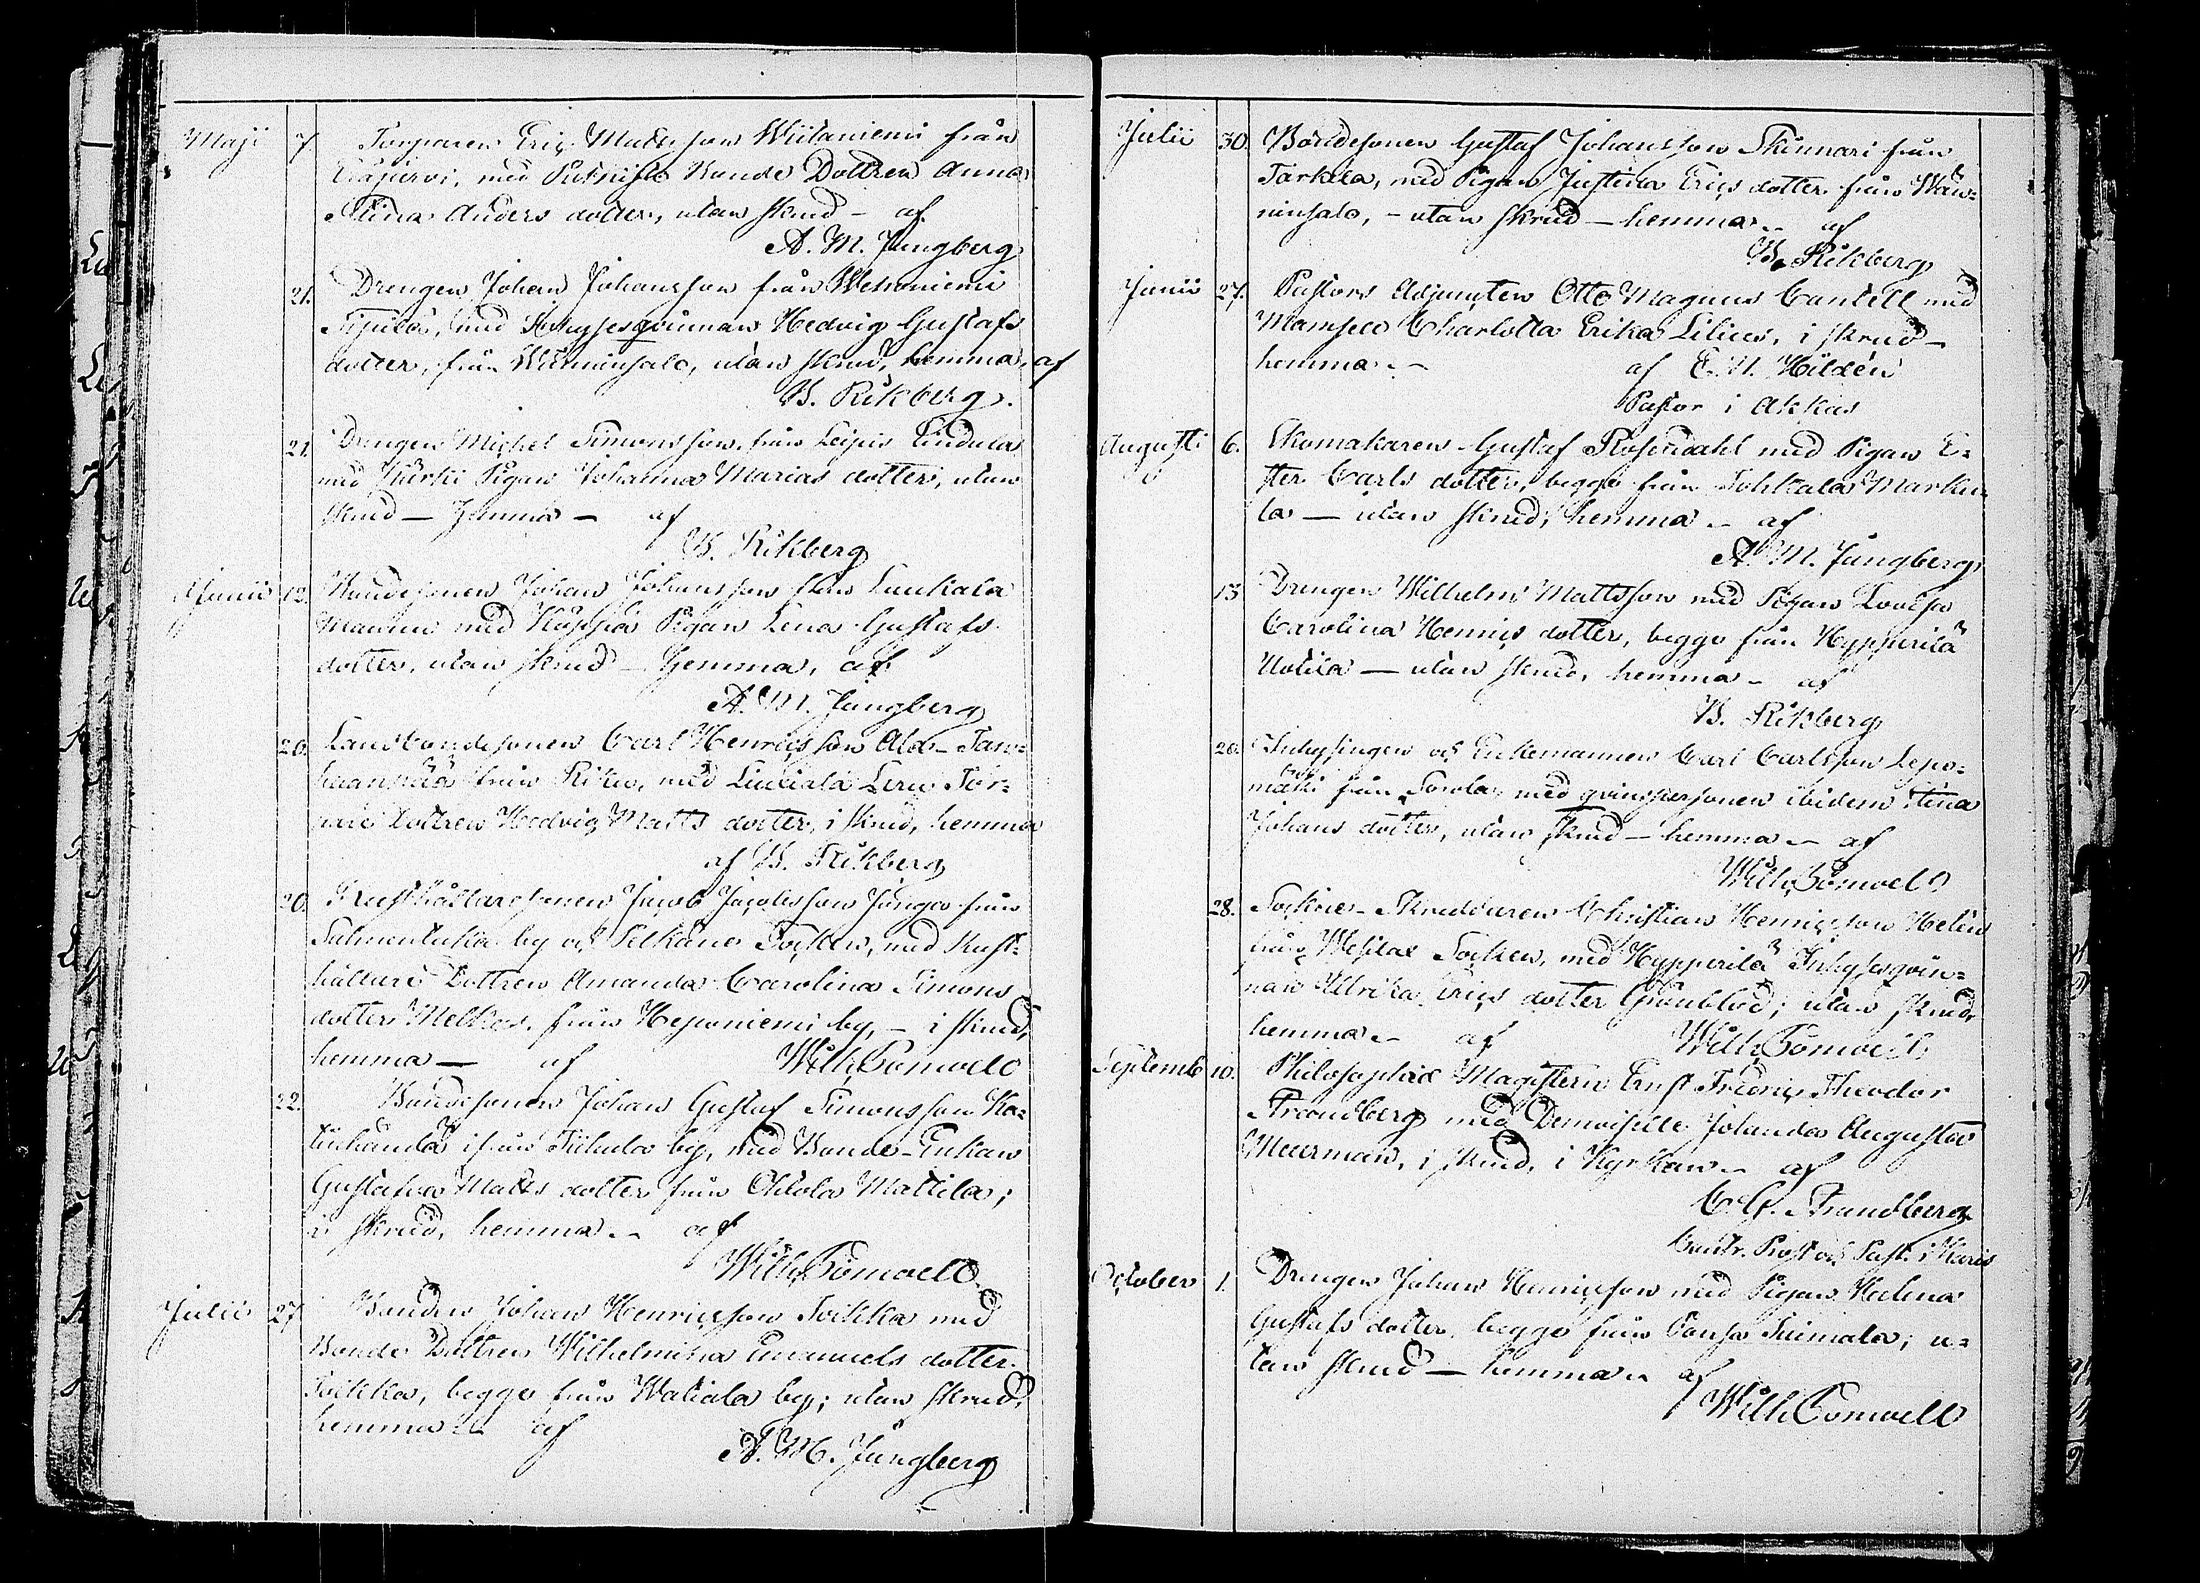 Maji 7. Torparen Eric Matts son Wiitaniemi från
med Bonde Dottren Anna
Stina Anders dotter, utan skrud – af
A. M. Jungberg
21. Drengen Johan Johansson från Wesaniemi
med Inhysesqvinnan Hedvig Gustafs
dotter, från utan skrud, hemma, af
B. Rikberg.
21. Drengen Michel Simonsson, från Leipis
med Pigan Johanna Marias dotter, utan
skrud – hemma – af
B. Rikberg
Junii 12. Bondesonen Johan Johansson från Laukala
med Pigan Lena Gustafs
dotter, utan skrud – hemma, af
A. M. Jungberg
20. Landbondesonen Carl Henricsson Ala-Tan-
haanpää från Riku, med Liuciala Lern Tor-
pare Dottren Hedvig Matts dotter, i skrud, hemma
af B. Rikberg
20. Rusthållaresonen Jacob Jacobsson Junga från
Salmentaka by och Pelkäne Socken, med Rust-
hållare Dottren Amanda Carolina Simons
dotter Melkas, från Heponiemi by, – i skrud,
hemma – af Wilh. Tömvell
22. Bondesonen Johan Gustaf Simonsson
från by, med Bonde-Enkan
Gustafva Matts dotter från Ohtola Mattila;
i skrud, hemma – af
Wilh. Tömvell
Julii 27. Bonden Johan Henricsson Toikka med
Bonde Dottren Wilhelmina Emanuels dotter
Toikka, begge från Watiala by; utan skrud,
hemma – af
A. M. Jungberg
Julii 30. Bondesonen Gustaf Johansson Skinnari från
Tarkila, med Pigan Justina Erics dotter från Wän-
ninsalo, – utan skrud – hemma – af
B. Rikberg
Junii 27. Pastors Adjuncten Otto Magnus Cantell med
Mamsell Charlotta Erika Lilius, i skrud –
hemma – af E. U. Hildén
Pastor i Akkas
Augusti 6. Skomakaren Gustaf Rosendahl med Pigan E-
ster Carls dotter, begge från Tohkala Marku-
la – utan skrud, hemma – af
A. M. Jungberg
13. Drengen Wilhelm Mattsson med Pigan Lovisa
Carolina Henrics dotter, begge från Hyppärilä
Uotila – utan skrud, hemma – af
B. Rikberg
20. Inhysingen och Enkemannen Carl Carlsson Lepo-
mäki från by, med qvinspersonen ibidem Stina
Johans dotter, utan skrud – hemma – af
Wilh. Tömvell
28. Sockne-Skräddaren Christian Henricsson Helin
från Wesilax Socken, med Hyppärilä Inhysesqvin-
nan Ulrika Erics dotter Grönblad; utan skrud,
hemma – af Wilh. Tömvell
Septemb. 10. Philosophiæ Magistern Ernst Fredric Theodor
Strandberg med Demoiselle Jolanda Augusta
Meurman, i skrud, i Kyrkan – af
C. G. Strandberg
Contr. Prost och Past. i Karis
October 1. Drengen Johan Henricsson med Pigan Helena
Gustafs dotter, begge från Pansa Tuimala; u-
tan skrud – hemma – af
Wilh. Tömvell